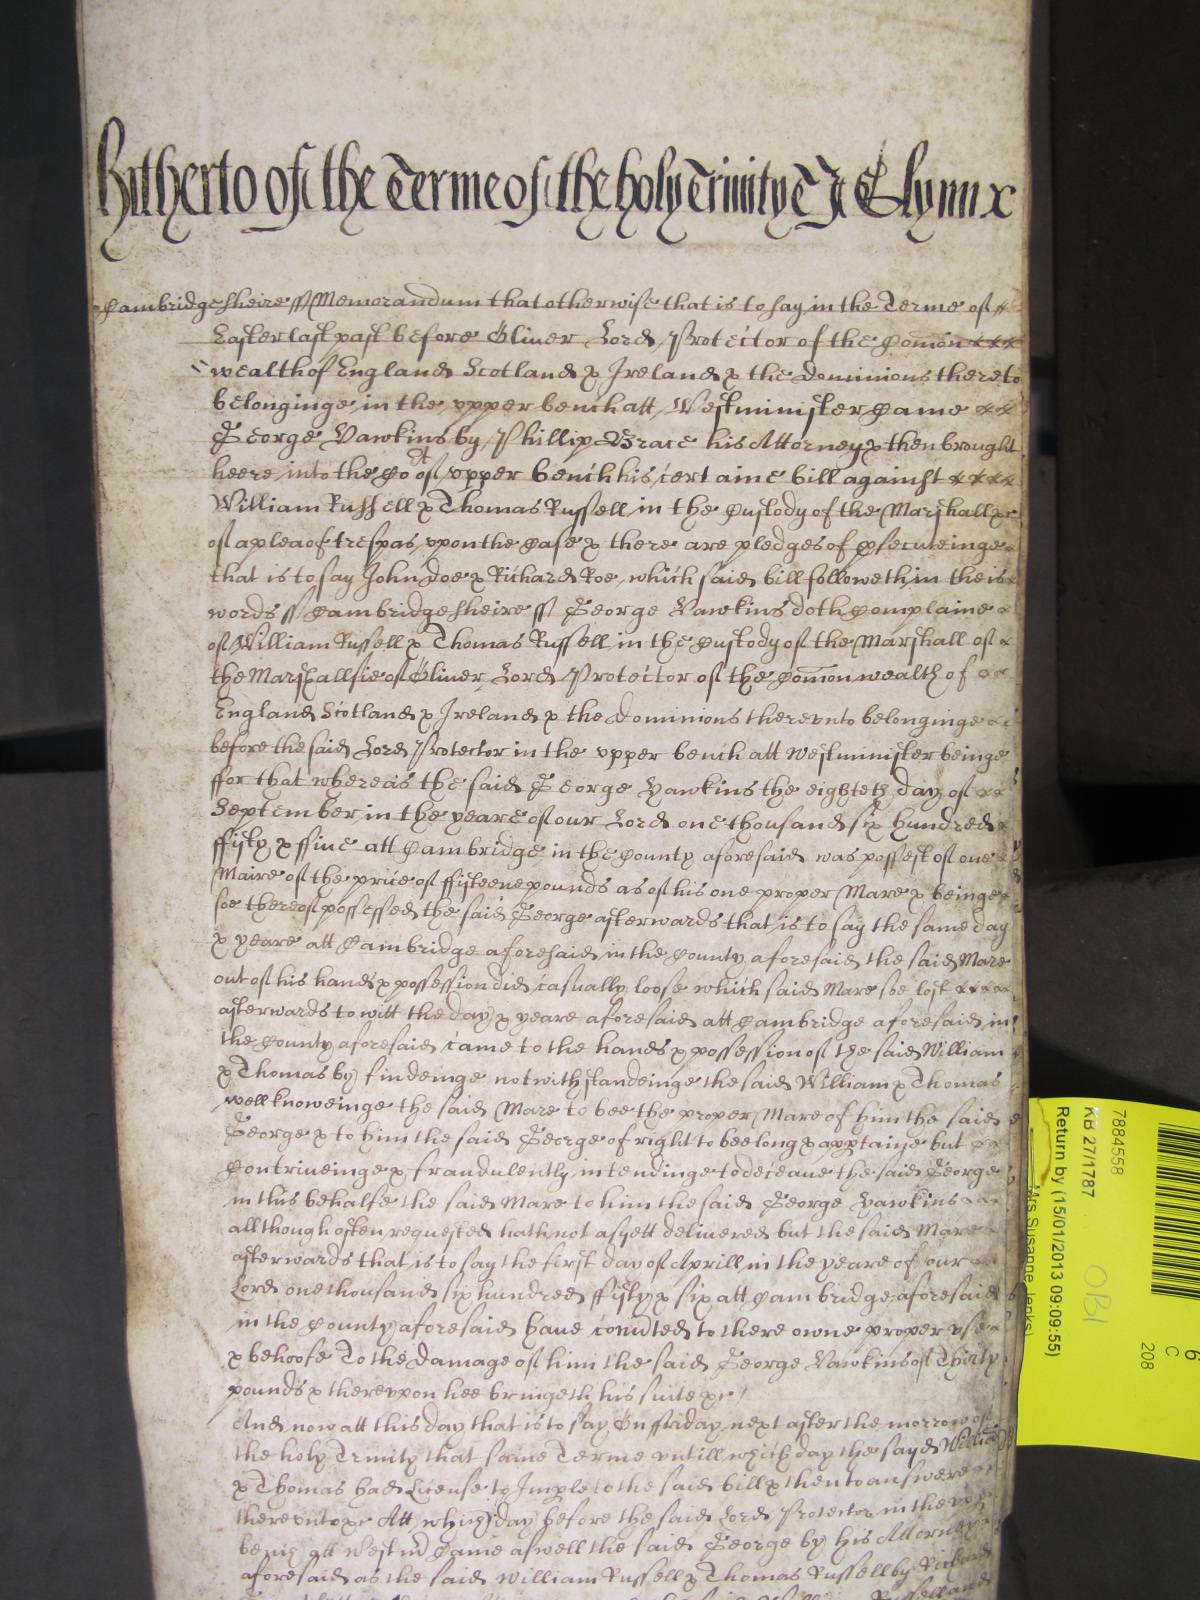 Hitherto of the Terme of the holy Trinity Glynn
Cambridgesheire ss Memorandum that otherwise that is to say in the Terme of
Easter last past before Oliver Lord Protector of the Comon
wealth of England Scotland & Ireland & the Dominions thereto
belonginge in the vpper bench att Westminister Came
George Hawkins by Phillip Brace his Attorney & then brought
heere into the Cot of vpper bench his certaine bill against
William Russell & Thomas Russell in the Custody of the Marshall &c
of a plea of trespas vpon the Case & there are pledges of psecuteinge
that is to say John Doe & Richard Roe which said bill followeth in theis
words ss Cambridgesheire ss George Hawkins doth Complaine
of William Russell & Thomas Russell in the Custody of the Marshall of
the Marshallsie of Oliver Lord Protector of the Comon wealth of
England Scotland & Ireland & the Dominions therevnto belonginge
before the said Lord Protector in the vpper bench att Westminister beinge
ffor that whereas the said George Hawkins the eighteth day of
September in the yeare of our Lord one thousand six hundred
ffifty & ffive att Cambridge in the County aforesaid was possest of one
Maire of the price of ffifteene pounds as of his one proper Mare & beinge
soe thereof possessed the said George afterwards that is to say the same day
& yeare att Cambridge aforesaid in the County aforesaid the said Mare
out of his hands & possession did casually loose which said Mare soe lost
afterwards to witt the day & yeare aforesaid att Cambridge aforesaid in
the County aforesaid came to the hands & possession of the said William
& Thomas by findeinge notwithstandeinge the said William & Thomas
well knoweinge the said Mare to bee the proper Mare of him the said
George & to him the said George of right to beelong & apptaine but
Contriveinge & fraudulently intendinge to deceave the said George
in this behalfe the said Mare to him the said George Hawkins
allthough often requested hath not as yett delivered but the said Mare
afterwards that is to say the first day of Aprill in the yeare of our
Lord one thousand six hundred ffifty & six att Cambridge aforesaid
in the County aforesaid have convted to there owne proper vse
& behoofe To the Damage of him the said George Hawkins of Thirty
pounds & therevpon hee bringeth his suite &c
And now att this day that is to say On ffriday next after the morrow of
the holy Trinity that same Terme vntill which day the sayd William
& Thomas had License to Imple to the said bill & then to answere
therevnto &c Att which day before the said Lord Protector in the vpp
bench att Westm Came aswell the said George by his Attorney
aforesaid as the said William Russell & Thomas Russell by Richard
7884558
KB 27/1787
Return by (15/01/2013 09:09:55)
Mrs Susanne Jenks)
OBI
6
C
208